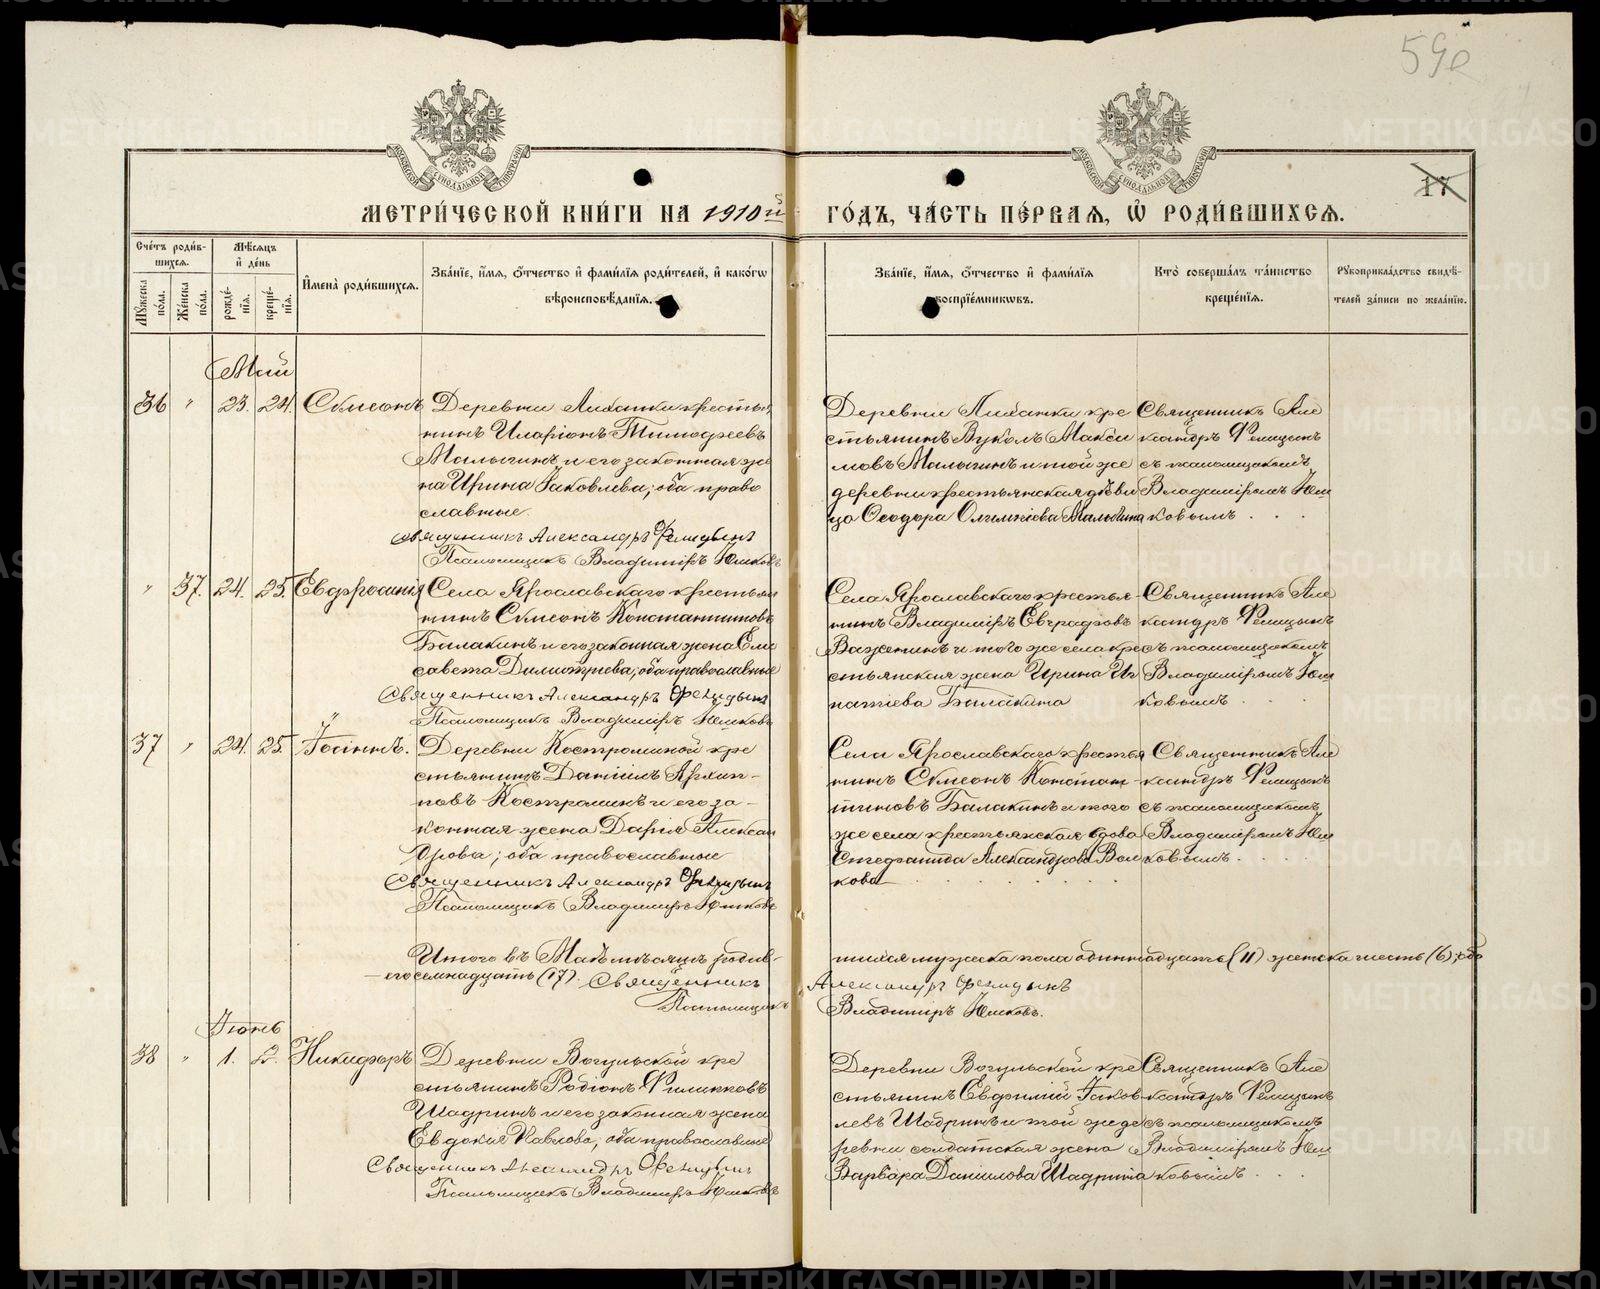 59е
МЕТРИ́ЧЕСКОЙ КНИ́ГИ НА 1910й ГО́ДЪ, ЧА́СТЬ ПЕ́РВАЯ, Ѽ РОДИ́ВШИХСЯ.
17
Сче́тъ роди́в-
шихся.
Мѣ́сяцъ
и҆ де́нь
Мꙋ́жеска по́ла.
Же́нска по́ла.
рожде́-
нїѧ.
креще́-
нїѧ.
И҆мена̀ роди́вшихсѧ.
Зва́нїе, и҆́мѧ, ѻ҆́тчество и҆ фами́лїѧ роди́телей, и҆ како́гѡ
вѣроисповѣ́данїѧ.
Зва́нїе, и҆́мѧ, ѻ҆́тчество и҆ фами́лїѧ
воспрїе́мникѡвъ.
Кто̀ соверша́лъ та́инство
креще́нїѧ.
Рꙋкоприкла́дство свидѣ́-
телей за́писи по жела́нїю.
Май
36 " 23. 24. Сѵмеонъ
Деревни Лиханки крестья
нинъ Иларіонъ Тимофеевъ
Малыгинъ и его законная же
на Ирина Іаковлева; оба право
славные.
Священникъ Александръ Фелицынъ
Псаломщикъ Владиміръ Юшковъ
Деревни Лиханки кре
стьянинъ Вуколъ Макси
мовъ Малыгинъ и той же
деревни крестьянская дѣви
ца Ѳеодора Олимпіева Малыгина
Священникъ Але
ксандръ Фелицынъ
съ псаломщикомъ
Владиміромъ Юш
ковымъ . . .
" 37. 24. 25. Евдфросинія
Села Ярославскаго крестьян
нинъ Сѵмеонъ Константиновъ
Балакинъ и его законная жена Ели
савета Димитріева; оба православные
Священникъ Александръ Фелицынъ
Псаломщикъ Владиміръ Юшковъ
Села Ярославскаго крестья-
нинъ Владиміръ Евграфовъ
Важенинъ и того же села кре
стьянская жена Ирина Иг
натіева Балакина
Священникъ Але
ксандръ Фелицынъ
съ псаломщикомъ
Владиміромъ Юш
ковымъ . .
37 " 24. 25. Іоаннъ.
Деревни Костроминой кре
стьянинъ Даніилъ Архип-
повъ Костроминъ и его за-
конная жена Дарія Алексан
дрова; оба православные
Священникъ Александръ Фелицынъ
Псаломщикъ Владиміръ Юшковъ
Села Ярославскаго крестья
нинъ Сѵмеонъ Констан-
тиновъ Балакинъ и того
же села крестьянская вдова
Стефанида Александрова Вол
кова
Священникъ Але
ксандръ Фелицынъ
съ псаломщикомъ
Владиміромъ Юш
ковымъ. . . .
Итого въ Маѣ мѣсяцѣ родив-
шихся мужеска пола одиннадцать (11) женска шесть (6); обо
его семнадцать (17). Священникъ
Александръ Фелицынъ
Псаломщикъ
Владиміръ Юшковъ.
Іюнь
38 " 1. 2. Никифоръ
Деревни Вогульской кре
стьянинъ Родіонъ Филипповъ
Шадринъ и его законная жена
Евдокія Павлова, оба православные
Священникъ Александръ Фелицынъ
Псаломщикъ Владиміръ Юшковъ
Деревни Вогульской кре
стьянинъ Евфимій Іаков
левъ Шадринъ и той же де
ревни солдатская жена
Варвара Даніилова Шадрина
Священникъ Але
ксандръ Фелицынъ
съ псаломщикомъ
Владиміромъ Юш
ковымъ . . .